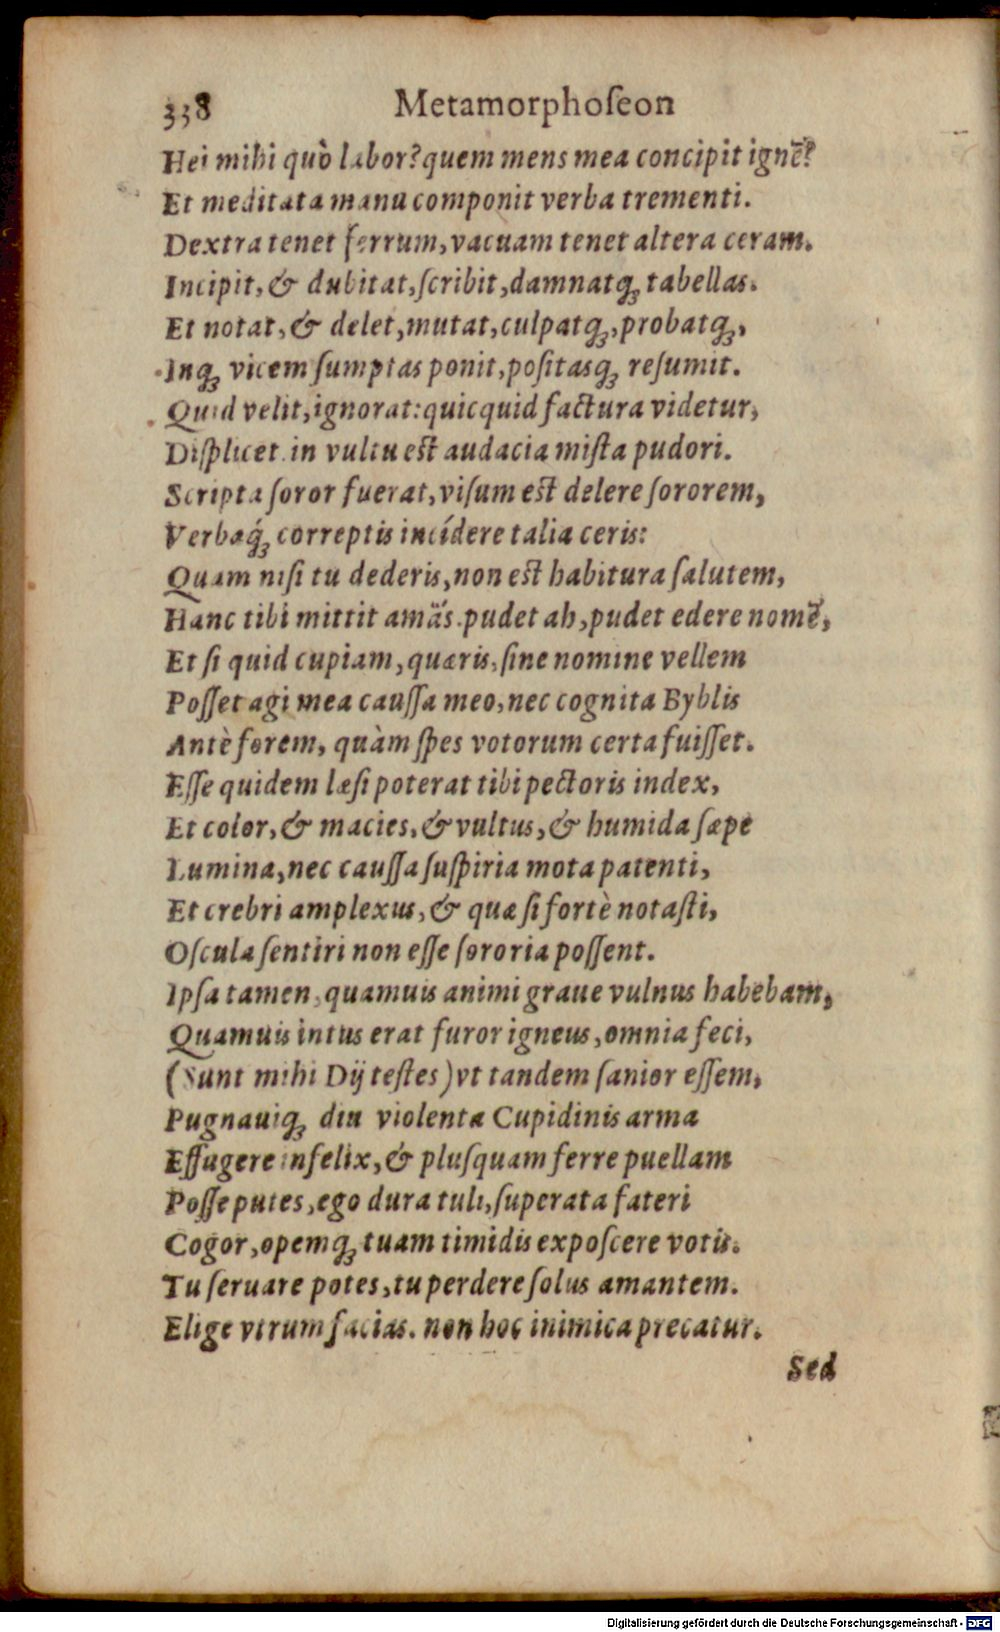 338 Metamorphoſeon
Hei mihi quò labor? quem mens mea concipit ignẽ?
Et meditata manu componit verba trementi.
Dextra tenet ferrum, vacuam tenet altera ceram.
Incipit, & dubitat, ſcribit, damnatq́ꝫ tabellas.
Et notat, & delet, mutat, culpatqꝫ, probatqꝫ,
Inqꝫ vicem ſumptas ponit, poſitasqꝫ reſumit.
Quid velit, ignorat: quicquid factura videtur,
Diſplicet. in vultu eſt audacia miſta pudori.
Scripta ſoror fuerat, viſum eſt delere ſororem,
Verbaq́ꝫ correptis incídere talia ceris:
Quam niſi tu dederis, non eſt habitura ſalutem,
Hanc tibi mittit amãs. pudet ah, pudet edere nomẽ,
Et ſi quid cupiam, quæris, ſine nomine vellem
Poſſet agi mea cauſſa meo, nec cognita Byblis
Antè forem, quàm ſpes votorum certa fuiſſet.
Eſſe quidem læſi poterat tibi pectoris index,
Et color, & macies, & vultus, & humida ſæpe
Lumina, nec cauſſa ſuſpiria mota patenti,
Et crebri amplexus, & quæ ſi fortè notaſti,
Oſcula ſentiri non eſſe ſororia poſſent.
Ipſa tamen, quamuis animi graue vulnus habebam,
Quamuis intus erat furor igneus, omnia feci,
(Sunt mihi Dij teſtes) vt tandem ſanior eſſem,
Pugnauiqꝫ diu violenta Cupidinis arma
Effugere infelix, & pluſquam ferre puellam
Poſſe putes, ego dura tuli, ſuperata fateri
Cogor, opemqꝫ tuam timidis expoſcere votis.
Tu ſeruare potes, tu perdere ſolus amantem.
Elige vtrum facias. non hoc inimica precatur.
Sed
Digitalisierung gefördert durch die Deutsche Forschungsgemeinschaft - DFG